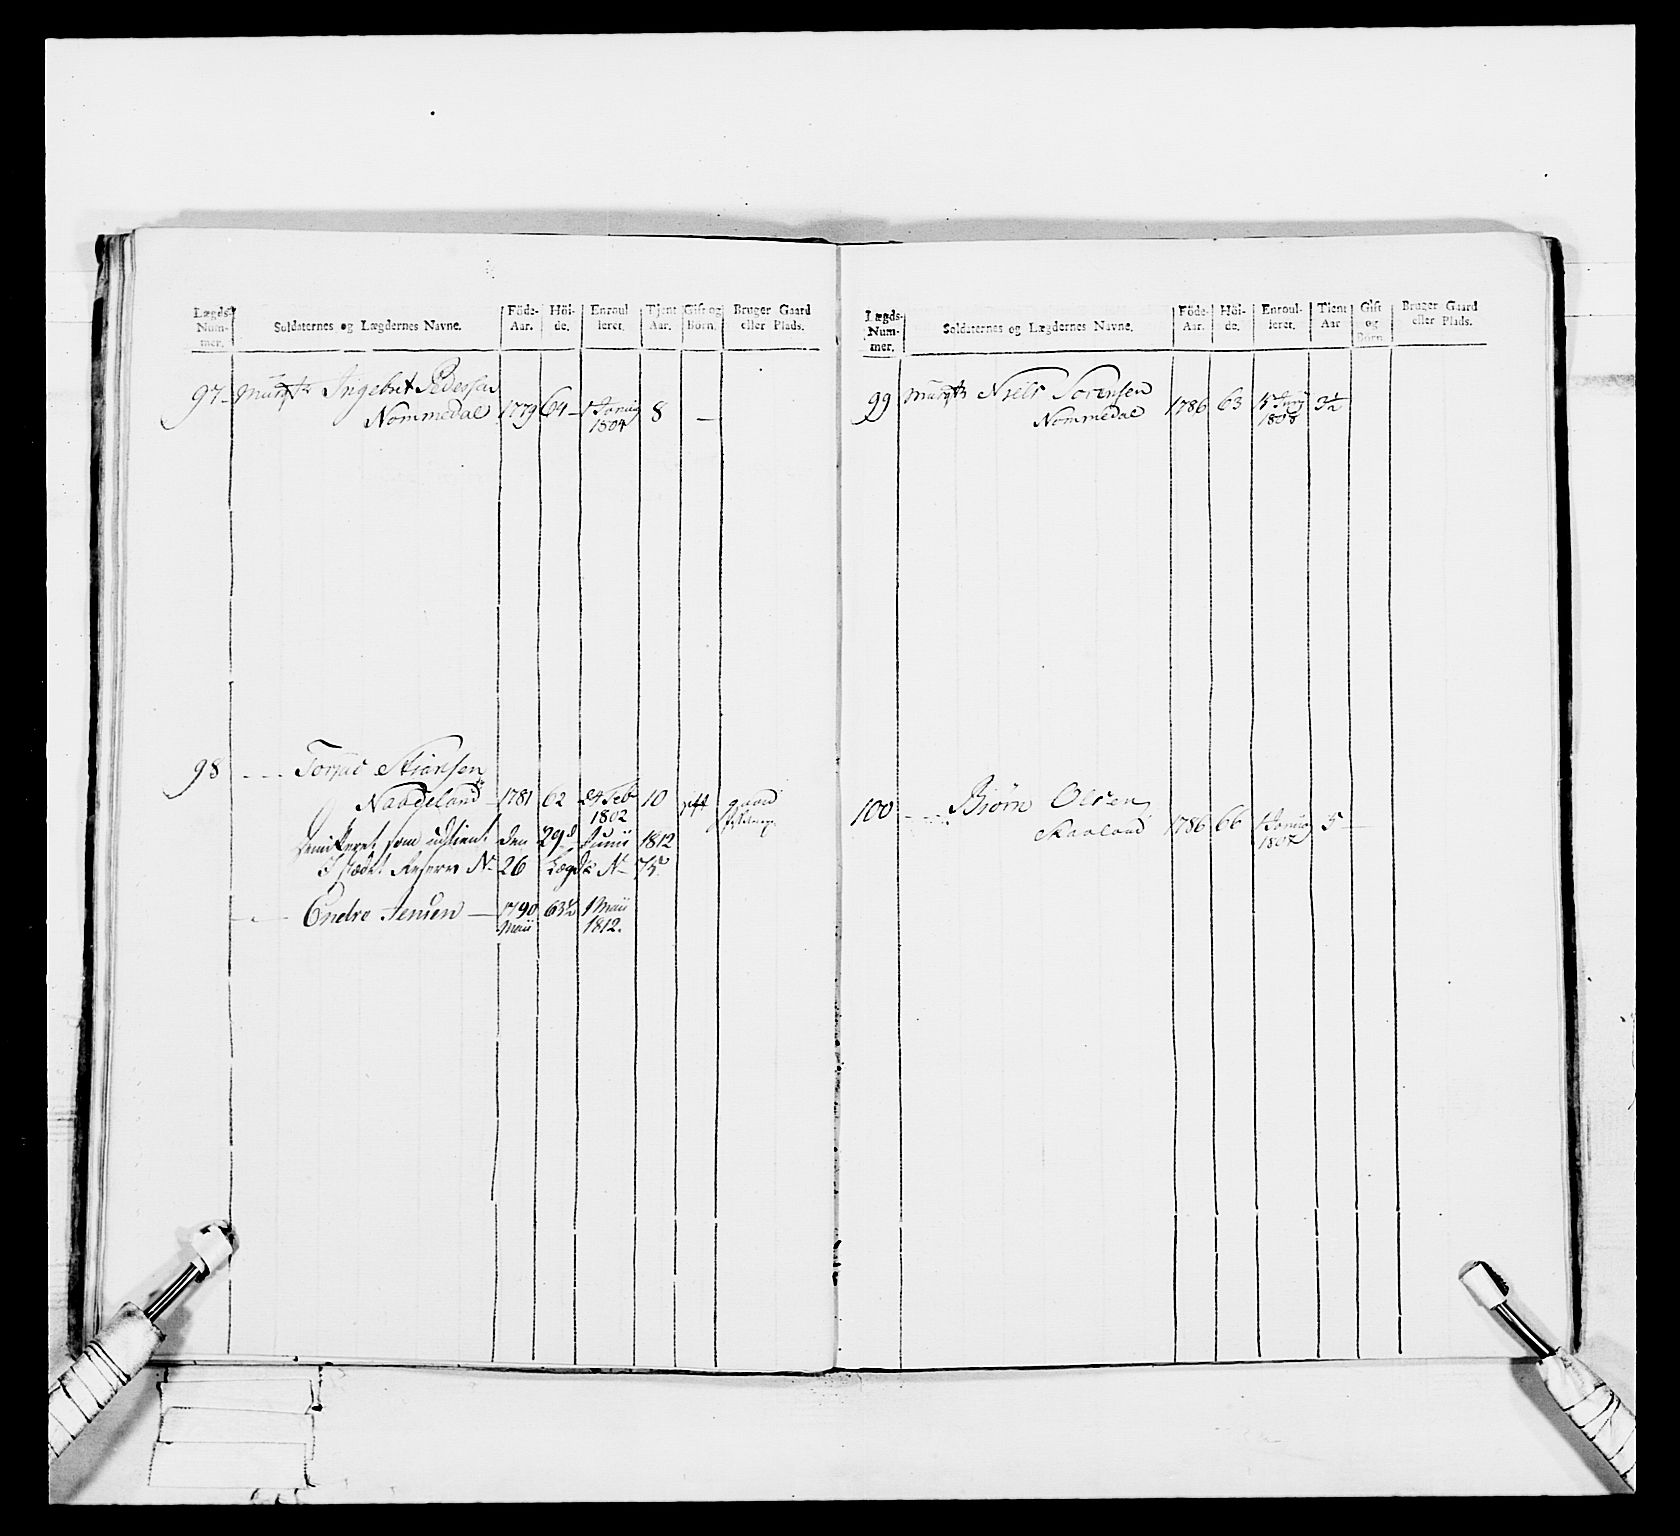 Lægds- Num- mer. Soldaternes og Lægdernes Navne. Föde- Aar. Höi- de. Enroul- leret. Tjent Aar. Gift og Börn. Bruger Gaard eller Plads.
97 Ingebret Pedersen
Nommedal 1779 64 – 1 Janua 1804 8 –
98 - - - Torjus
Naadeland – 1781 62 24 Feb 1802 10 gift gaard
som udtient den 29d Junii 1812
I stædet Reserve No 26 Lægds No 75.
- - - Endre Jensen – 1790 Maii 63½ 1 Maii 1812.
Lægds- Num- mer. Soldaternes og Lægdernes Navne. Föde- Aar. Höi- de. Enroul- leret. Tient Aar Gift og Börn. Bruger Gaard eller Plads.
99 Niels Sorensen
Nommedal 1786 63 1808 3½
100 - - - Biørn Olsen
Skaaland 1786 66 1 Janua 1807 5 –